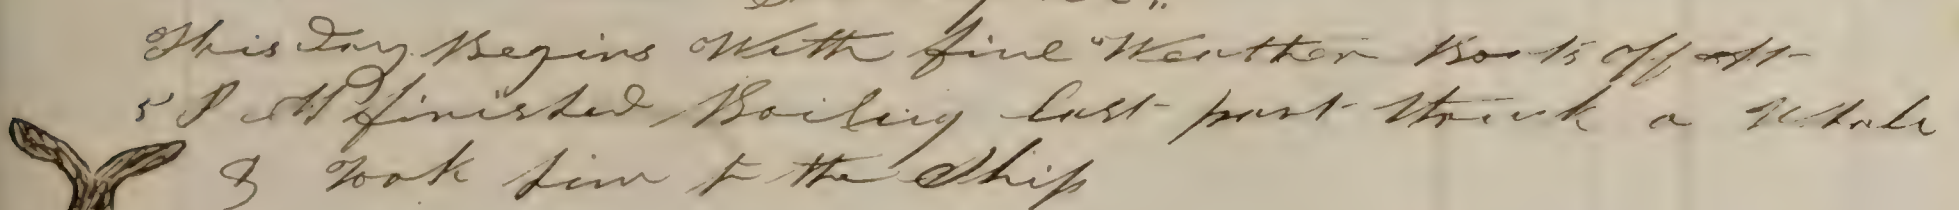 This Day Begins With fine Weather Boats off att
5 P M finished Boiling last part Struck a Whale
& Took him to the Ship